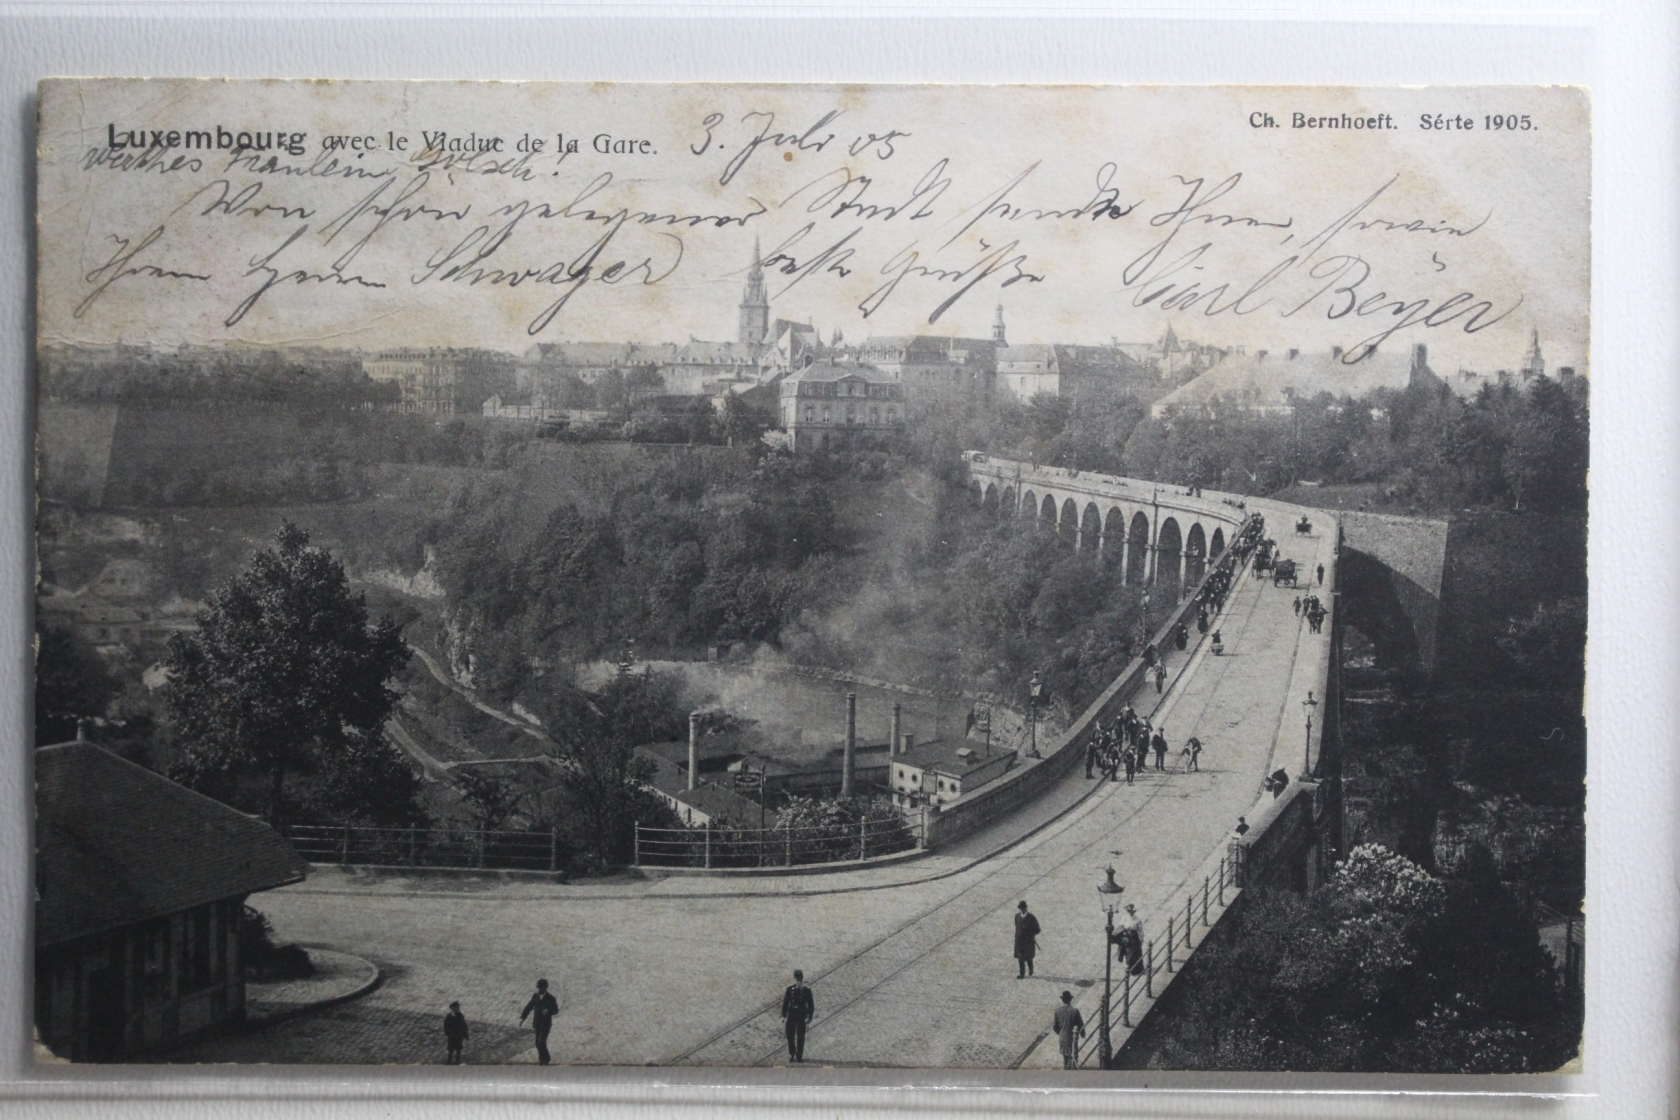 Luxembourg avec le Viaduc de la Gare.
Ch. Bernhoeft. Série 1905.
3. Juli 05
Werthes Fräulein Golsch!
Von schön gelegener Stadt sende Ihnen, sowie
Ihrem Herrn Schwager beste Grüße Carl Beyer